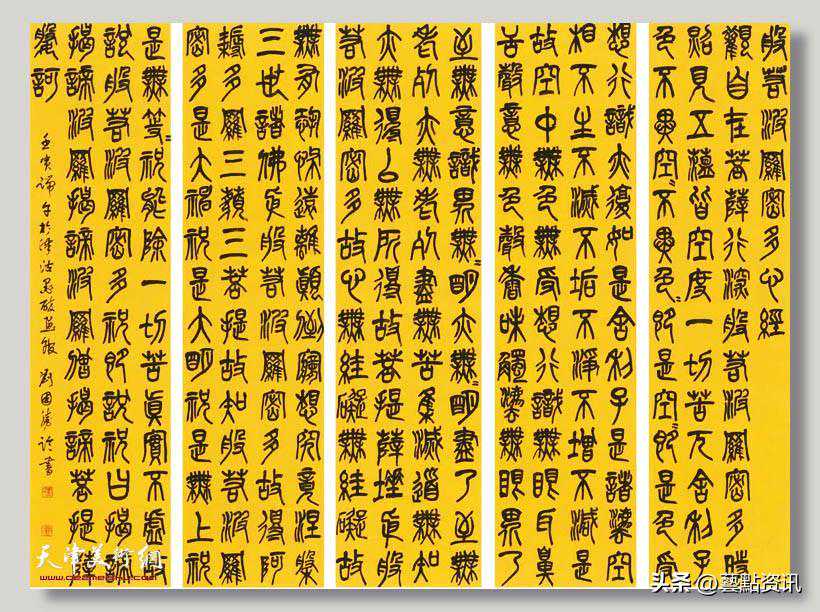 般若波羅密多心經
觀自在菩薩行深般若波羅密多時
照見五蘊皆空度一切苦厄舍利子
色不異空〻不異色〻即是空〻即是色受
想行識亦復如是舍利子是諸法空
相不生不滅不垢不淨不增不減是
故空中無色無受想行識無眼耳鼻
舌聲意無色聲香味觸法無眼界乃
至無意識界無〻明亦無〻明盡乃至無
老死亦無老死盡無苦集滅道無知
亦無得以無所得故菩提薩埵依般
若波羅密多故心無罣礙無罣礙故
無有恐怖遠離顛倒夢想究竟涅槃
三世諸佛依般若波羅密多故得阿
耨多羅三藐三菩提故知般若波羅
密多是大神咒是大明咒是無上咒
是無等〻咒能除一切苦真實不虛故
說般若波羅密多咒即說咒曰揭諦
揭諦波羅揭諦波羅僧揭諦菩提薩
婆訶
壬寅端午於津沽 劉國 書
天津美術網
头条 @藝點资讯